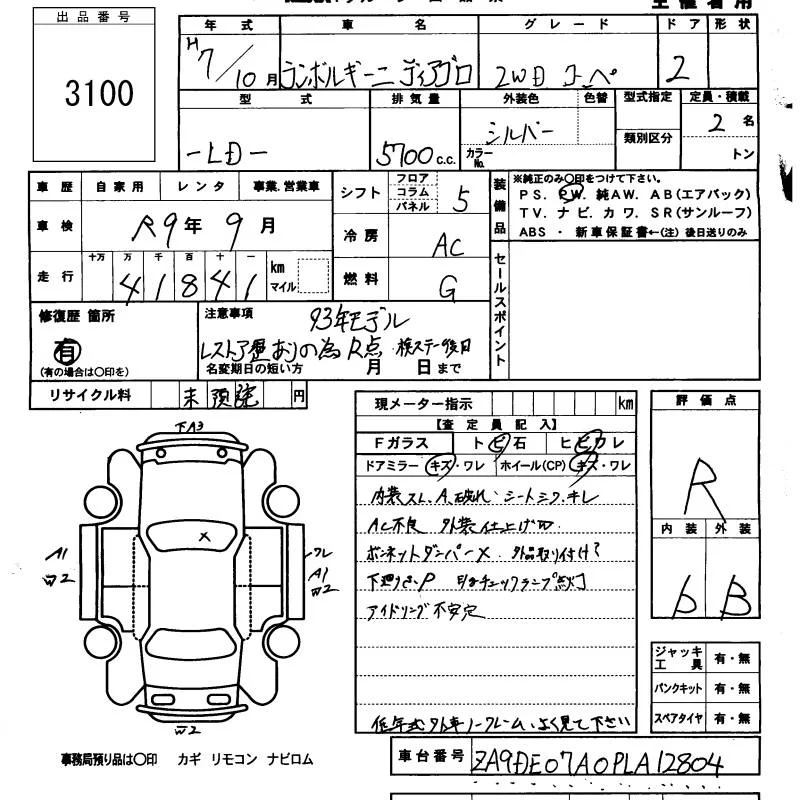 出品番号
3100
年式 車名 グレード ドア 形状
H7/10月 ランボルギーニ ディアブロ 2WD クーペ 2
型式 排気量 外装色 色替 型式指定 定員・積載
-LD- 5700c.c. シルバー カラーNo. 類別区分 2名
トン
車歴 自家用 レンタ 事業.営業車
車検 R9年9月
走行 十万 万 千 百 十 一 km マイル
41841
シフト フロア コラム パネル 5
冷房 AC
燃料 G
装備品
※純正のみ○印をつけて下さい。
PS. PW. 純AW. AB(エアバック)
TV. ナビ. カワ. SR(サンルーフ)
ABS ・ 新車保証書←(注) 後日送りのみ
セールスポイント
修復歴 箇所
有
(有の場合は○印を)
注意事項 93年モデル
レストア歴ありの為 R点 検ステー後日
名変期日の短い方 月 日まで
リサイクル料 未預託 円
現メーター指示 km
【査定員記入】
Fガラス トビ石 ヒビワレ
ドアミラー キズ・ワレ ホイール(CP) キズ・ワレ
内装スレ、A、破れ シートシワ、キレ
AC不良 外装仕上げ
ボンネットダンパーX 外品取り付け?
下廻りさび、P チェックランプ点灯
アイドリング不安定
低年式外車ノークレーム、よく見て下さい
評価点
R
内装 外装
b B
ジャッキ工具 有・無
パンクキット 有・無
スペアタイヤ 有・無
A3
X
A1
W2
ワレ
A1
W2
W2
事務局預り品は○印 カギ リモコン ナビロム
車台番号 ZA9DE07A0PLA12804